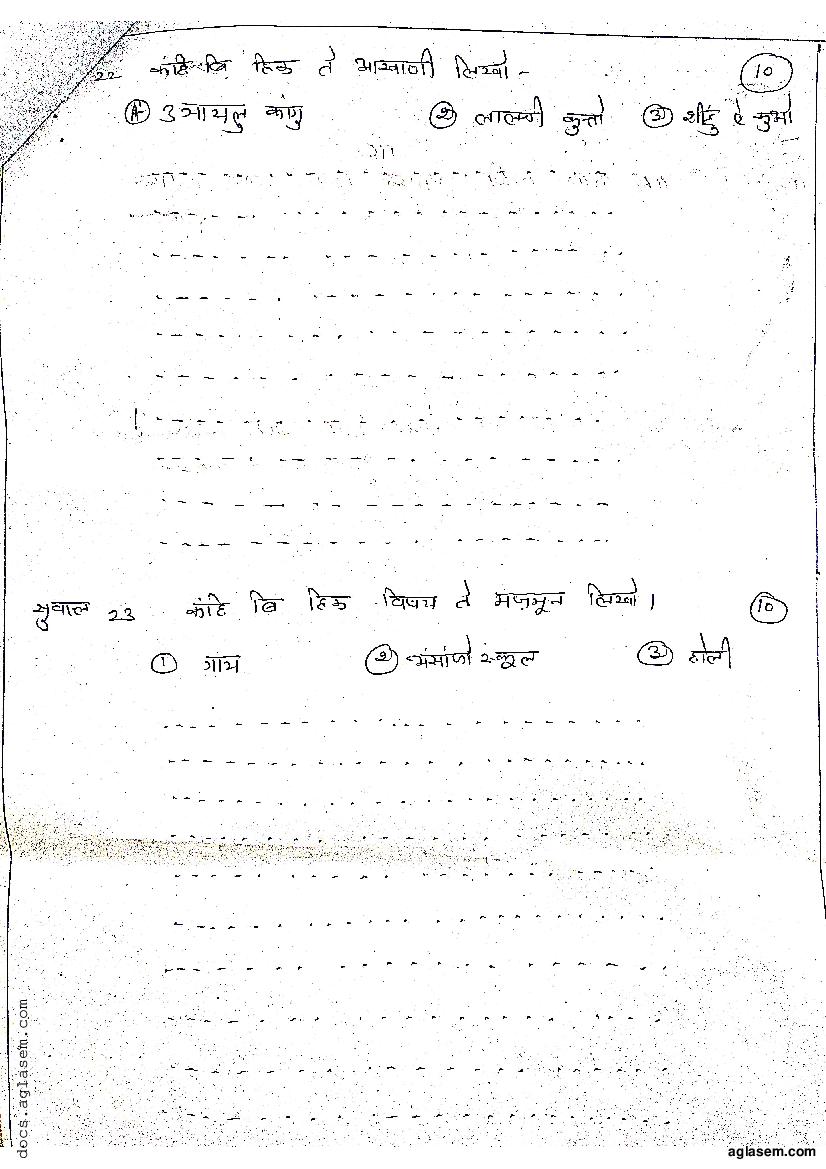 22 कंहिं बि हिक ते आखाणी लिखो -
10
A उञायलु कांगु 2 लालची कुतो 3 शींहुं ऐं कुओ
सुवाल 23 कंहिं बि हिक विषय ते मज़मून लिखो।
10
1 गांय 2 असांजो स्कूल 3 होली
docs.aglasem.com
aglasem.com